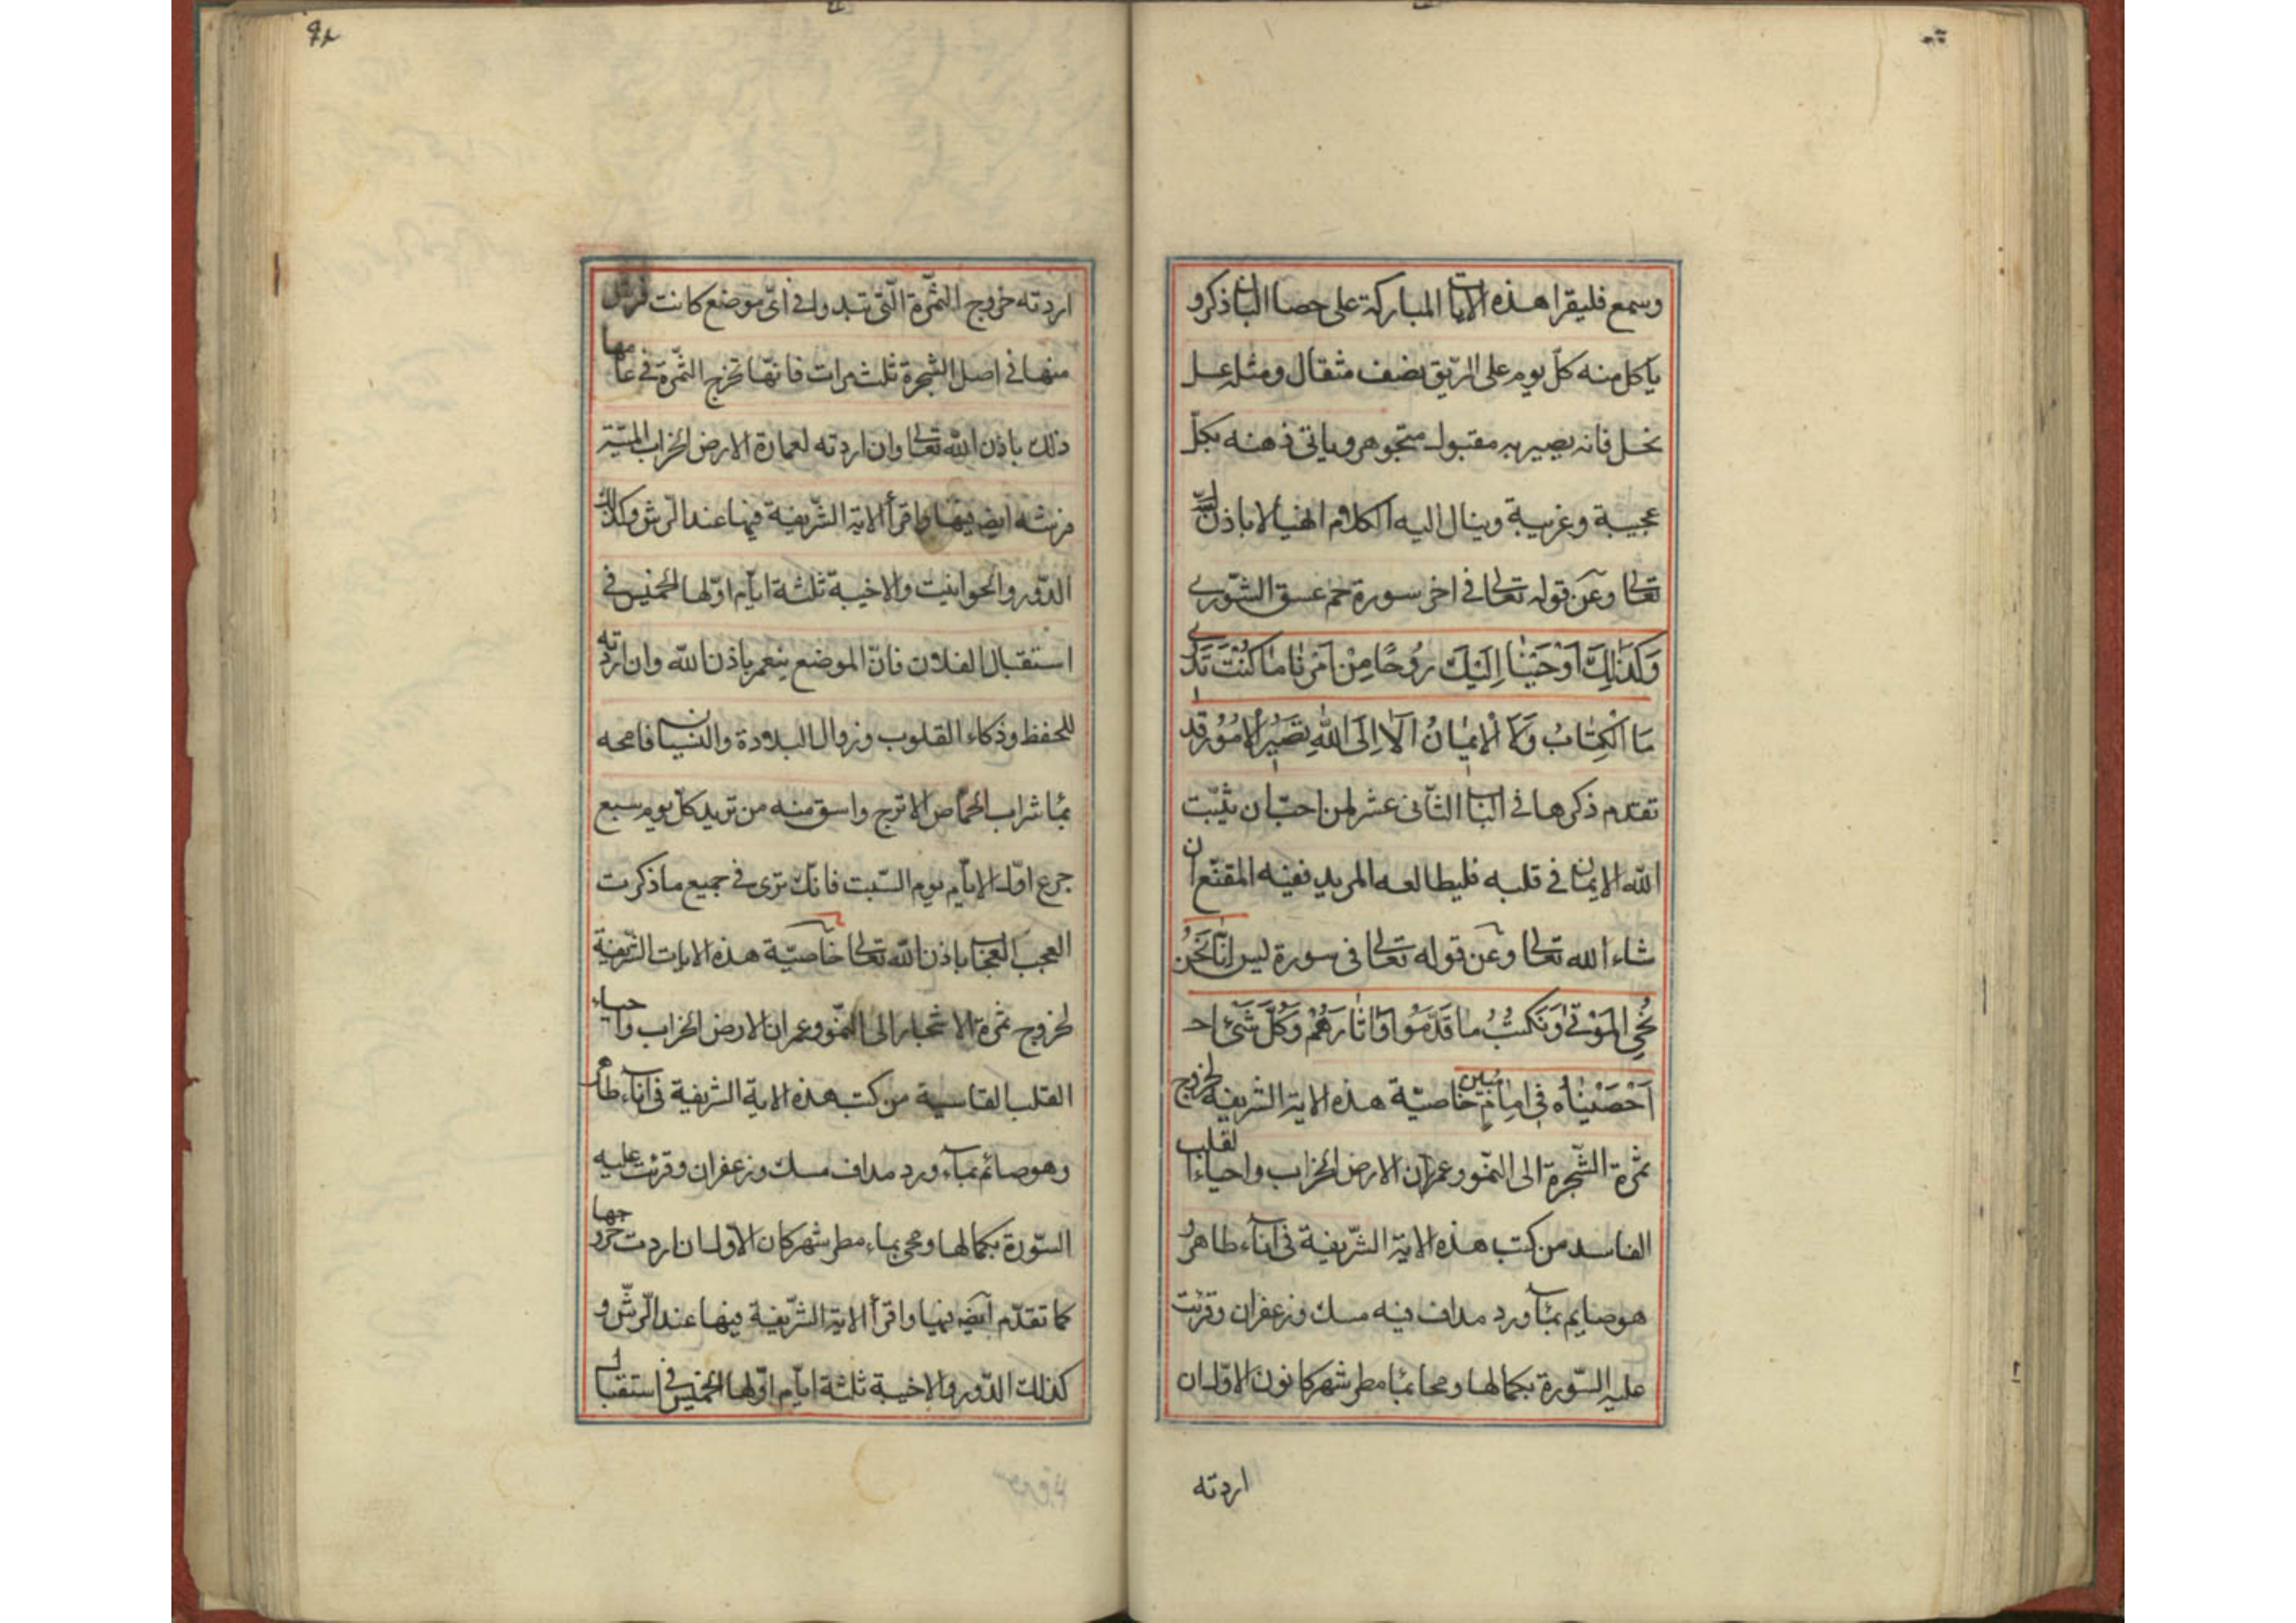 وسمع فليقرا هذه الايات المباركة على حصا اللبان ذكر و
ياكل منه كلّ يوم على الرّيق نصف مثقال ومثله عسل
نحل فانه يصير به مقبولا متجوهر وياتى ذهنه بكلّ
عجيبة وغريبة وينال اليه الكلام الهيا لا باذن الله
تعالى وعن قوله تعالى فى اخر سورة حم عسق الشّورى
وَكَذٰلِكَ اَوْحَيْنٰا اِلَيْكَ رُوحًا مِنْ اَمْرِنٰا مٰا كُنْتَ تَدْرى
مَا الْكِتٰابُ وَلَا الْايمٰانُ اَلٰا اِلَى اللّٰهِ تَصيرُ الْاُمُورُ قد
تقدم ذكرها فى الباب الثّانى عشر لمن احبّ ان يثبّت
الله الايمان فى قلبه فليطالعه المريد ففيه المقنّع ان
شاء الله تعالى وعن قوله تعالى فى سورة يس اِنّٰا نَحْنُ
نُحْيِ الْمَوْتٰى وَنَكْتُبُ مٰا قَدَّمُوا وَاٰثٰارَهُمْ وَكُلَّ شَىْءٍ
اَحْصَيْنٰاهُ فى اِمٰامٍ مُبين خاصيّة هذه الاية الشريفة لخروج
ثمرة الشّجرة الى النّمو وعمران الارض الخراب واحياء القلب
الفاسد من كتب هذه الاية الشّريفة فى اناء طاهر و
هو صايم بماء ورد مداف فيه مسك وزعفران وقرئت
عليه السّورة بكمالها ومحا بماء مطر شهر كانون الاوّل ان
اردته
اردته خروج الثمّرة الّتى تبدو فى اىّ موضع كانت فرش
منها فى اصل الشّجرة ثلث مرات فانّها تخرج الثمّرة فى عامها
ذلك باذن الله تعالى وان اردته لعمارة الارض الخراب
فرشه ايضا فيها واقرأ الاية الشّريفة فيها عند الرّش وكذلك
الدّور والحوانيت والاخبية ثلثة ايّام اوّلها الخميس فى
استقبال الفلان فانّ الموضع يتعمر باذن الله وان اردته
للحفظ وذكاء القلوب وزوال البلادة والنسيان فامحه
بماء شراب الحمّاض الاترج واسق منه من تريد كلّ يوم سبع
جرع اوّل الايّام يوم السّبت فانّك ترى فى جميع ما ذكرت
العجب العجاب باذن الله تعالى خاصيّة هذه الايات الشّريفة
لخروج ثمرة الاشجار الى النّمو وعمران الارض الخراب واحياء
القلب القاسية من كتب هذه الاية الشريفة فى اناء طاهر
وهو صائم بماء ورد مداف مسك وزعفران وقرئت عليه
السّورة بكمالها ومحى بماء مطر شهر كان الاول ان اردت خروجها
كما تقدّم ايضا فيها واقرأ الاية الشّريفة فيها عند الرّشّ و
كذلك الدّور والاخبية ثلثة ايّام اوّلها الخميس فى استقبال